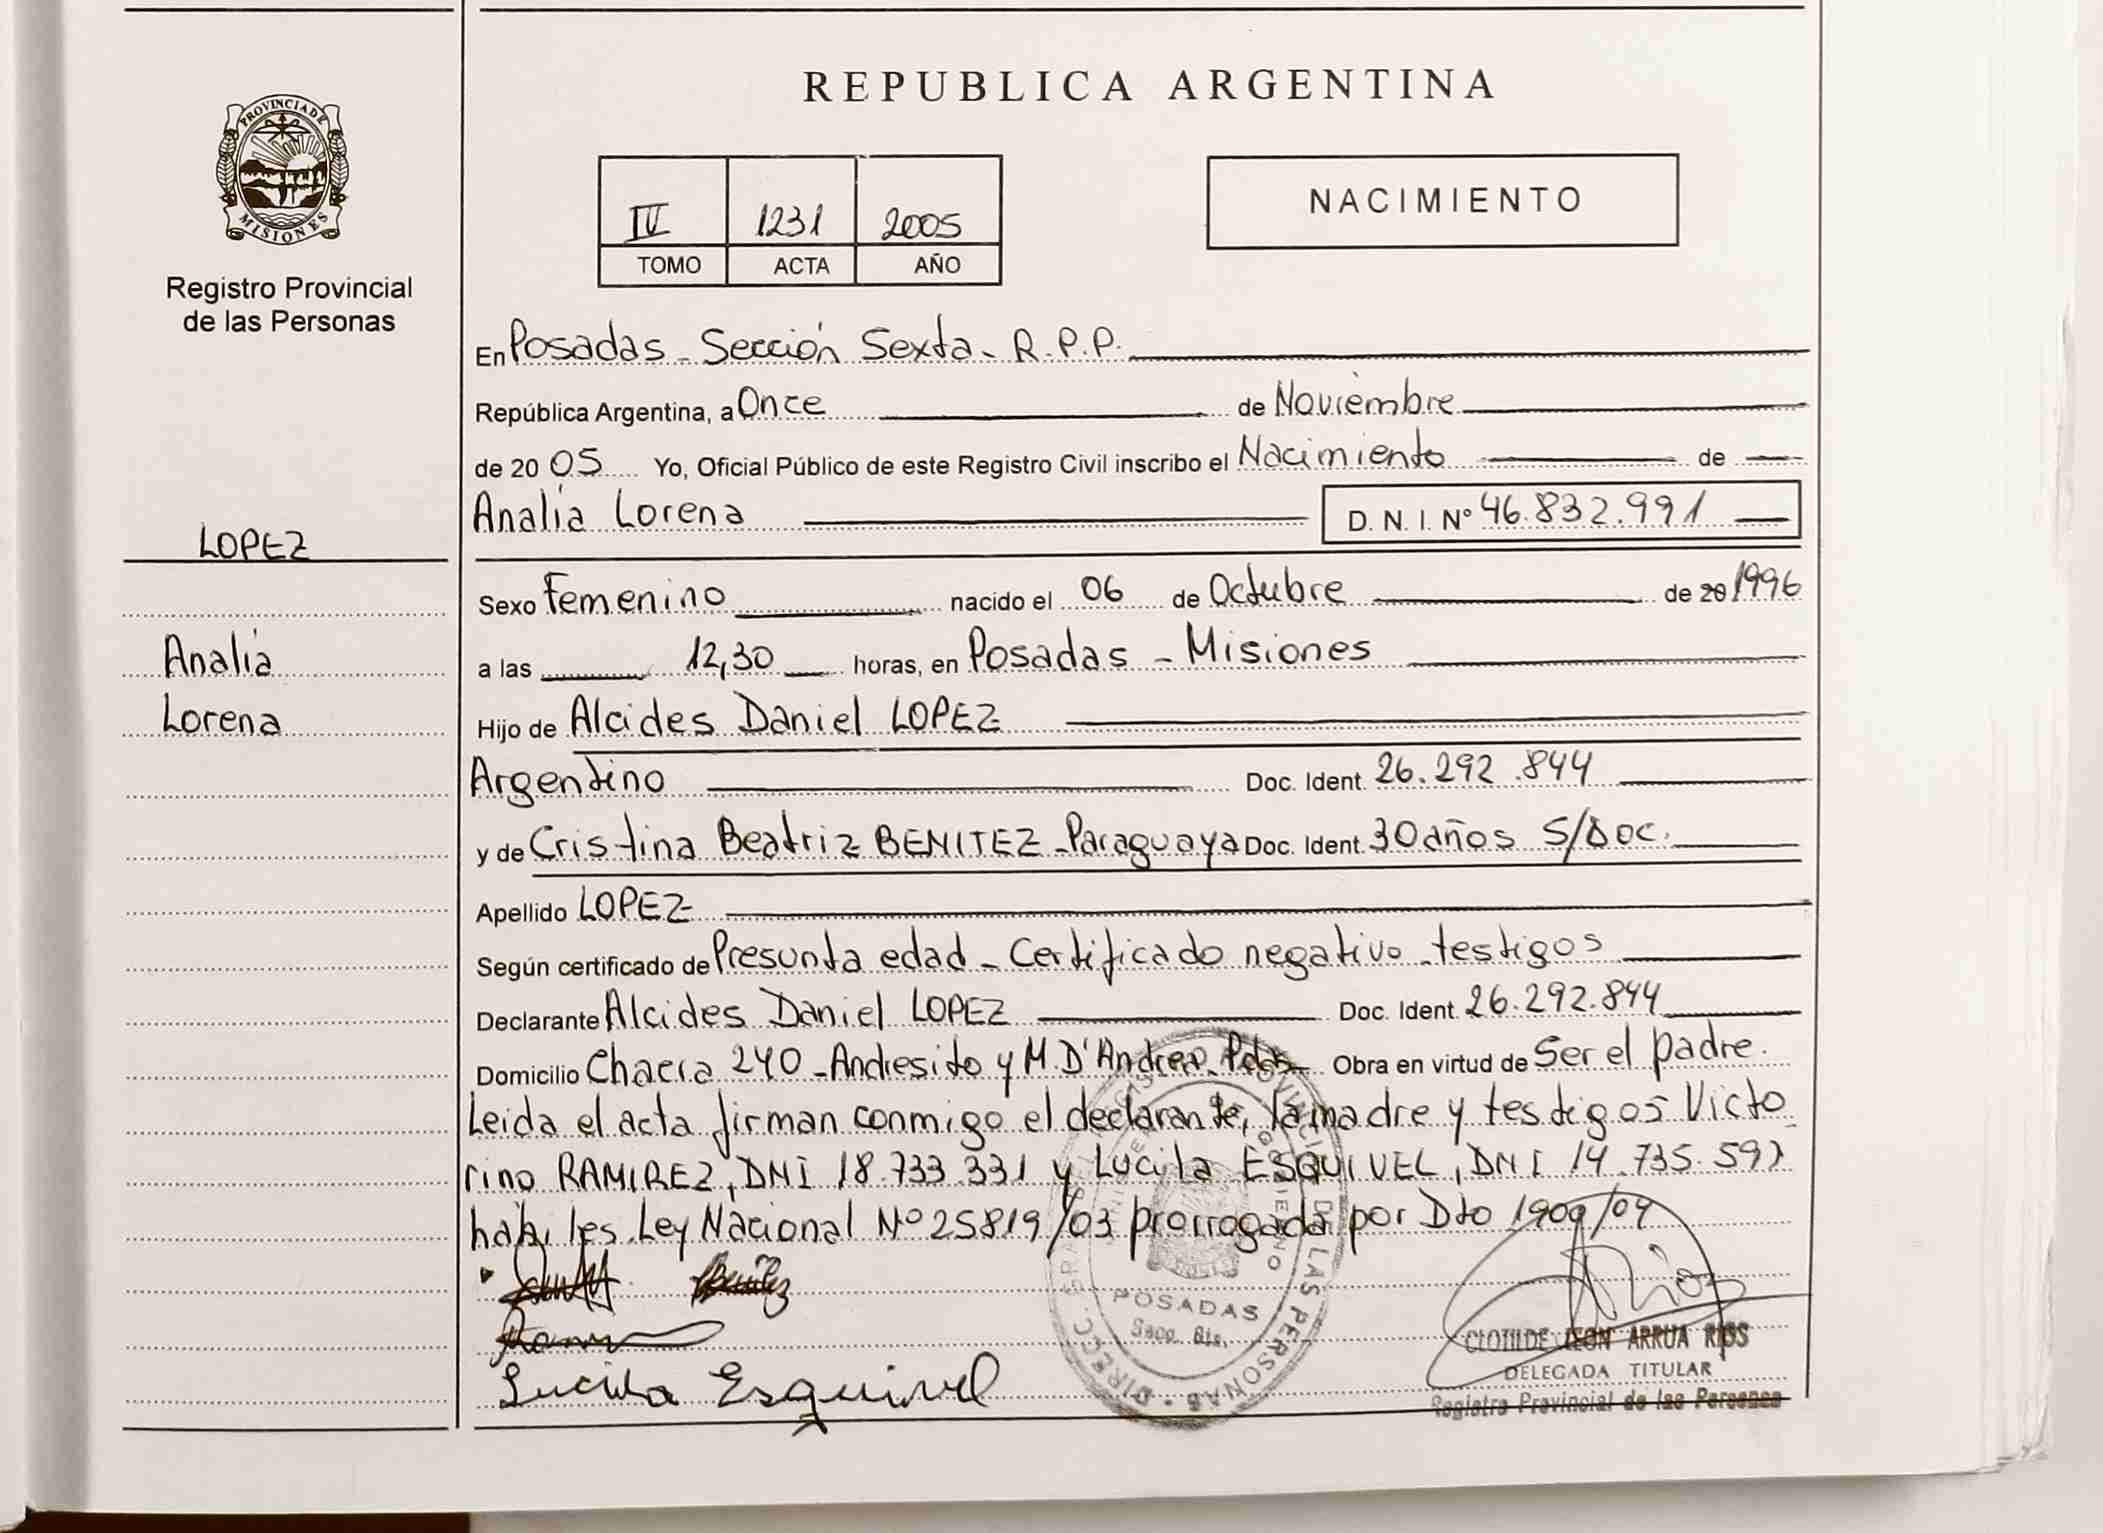 PROVINCIA DE
MISIONES
Registro Provincial
de las Personas
LOPEZ
Analia
Lorena
REPUBLICA ARGENTINA
IV 1231 2005
TOMO ACTA AÑO
NACIMIENTO
En Posadas - Sección Sexta - R.P.P.
República Argentina, a Once de Noviembre
de 20 05 Yo, Oficial Público de este Registro Civil inscribo el Nacimiento de
Analia Lorena D. N. I. Nº 46.832.991
Sexo Femenino nacido el 06 de Octubre de 20 1996
a las 12,30 horas, en Posadas - Misiones
Hijo de Alcides Daniel LOPEZ
Argentino Doc. Ident. 26.292.844
y de Cristina Beatriz BENITEZ - Paraguaya Doc. Ident. 30 años S/Doc.
Apellido LOPEZ
Según certificado de Presunta edad - Certificado negativo - testigos
Declarante Alcides Daniel LOPEZ Doc. Ident. 26.292.844
Domicilio Chacra 240 - Andresito y M. D'Andrea - Pdas Obra en virtud de Ser el padre.
Leida el acta firman conmigo el declarante, la madre y testigos Victo
rino RAMIREZ, DNI 18.733.331 y Lucila ESQUIVEL, DNI 14.735.597
hábiles Ley Nacional Nº 25819/03 prorrogada por Dto 1909/04
Benitez
Lucila Esquivel
POSADAS
Secc. 6ta.
CLOTILDE LEON ARRUA RIOS
DELEGADA TITULAR
Registro Provincial de las Personas